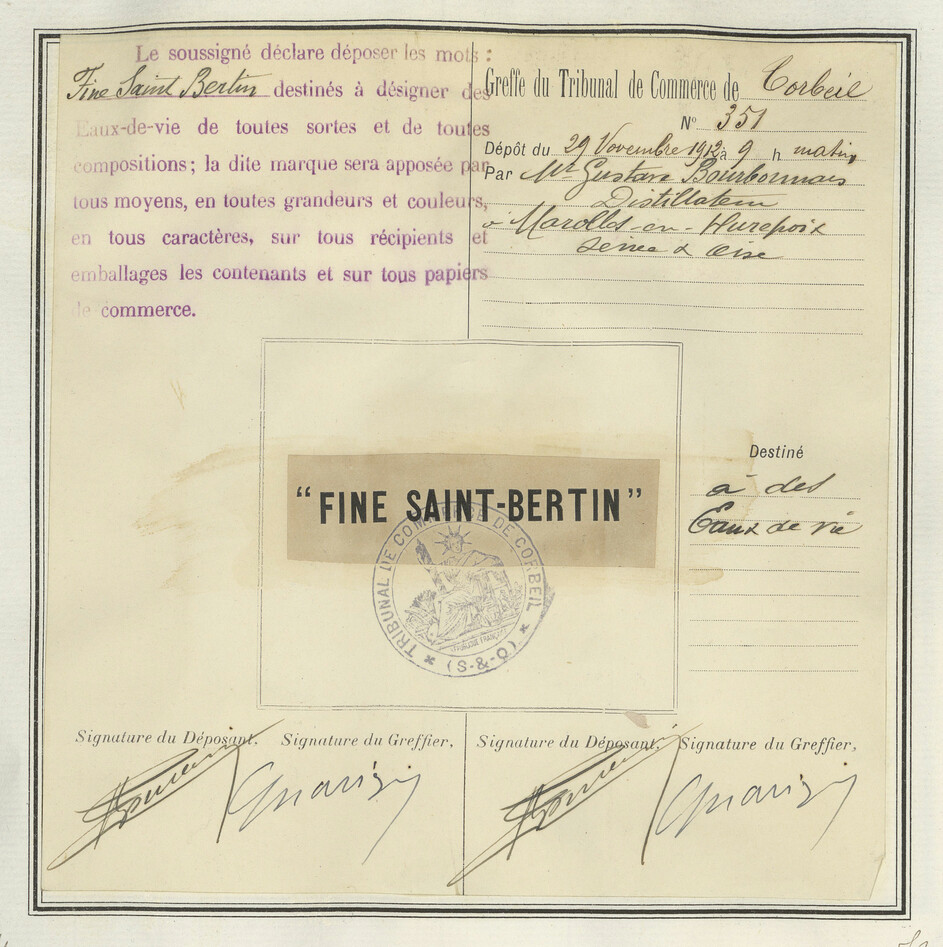 Le soussigné déclare déposer les mots :
Fine Saint Bertin destinés à désigner des
Eaux-de-vie de toutes sortes et de toutes
compositions; la dite marque sera apposée par
tous moyens, en toutes grandeurs et couleurs,
en tous caractères, sur tous récipients et
emballages les contenants et sur tous papiers
de commerce.
Greffe du Tribunal de Commerce de Corbeil
N° 351
Dépôt du 29 Novembre 1912 à 9 h matin
Par Mr Gustave Bourbonnais
Distillateur
à Marolles-en-Hurepoix
Seine & Oise
"FINE SAINT-BERTIN"
TRIBUNAL DE COMMERCE DE CORBEIL
RÉPUBLIQUE FRANÇAISE
(S-&-O)
Destiné
à des
Eaux de vie
Signature du Déposant, Signature du Greffier,
Signature du Déposant, Signature du Greffier,